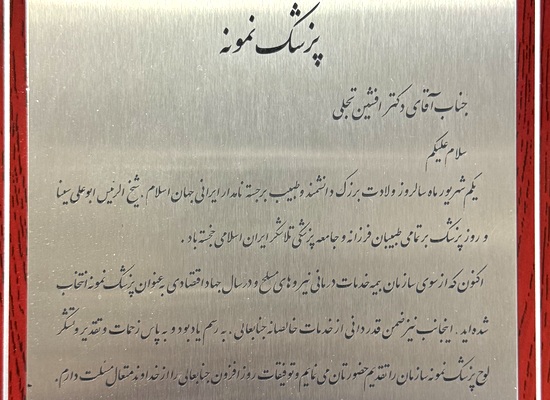 پزشک نمونه
جناب آقای دکتر افشین تجلی
سلام علیکم
یکم شهریور ماه سالروز ولادت بزرگ دانشمند و طبیب برجسته نامدار ایرانی جهان اسلام، شیخ الرئیس ابوعلی سینا
و روز پزشک بر تمامی طبیبان فرزانه و جامعه پزشکی تلاشگر ایران اسلامی خجسته باد .
اکنون که از سوی سازمان بیمه خدمات درمانی نیروهای مسلح و در سال جهاد اقتصادی به عنوان پزشک نمونه انتخاب
شده اید . اینجانب نیز ضمن قدردانی از خدمات خالصانه جنابعالی ، به رسم یادبود و به پاس زحمات و تقدیر و تشکر
لوح پزشک نمونه سازمان را تقدیم حضورتان می نمایم و توفیقات روز افزون جنابعالی را از خداوند متعال مسئلت دارم .